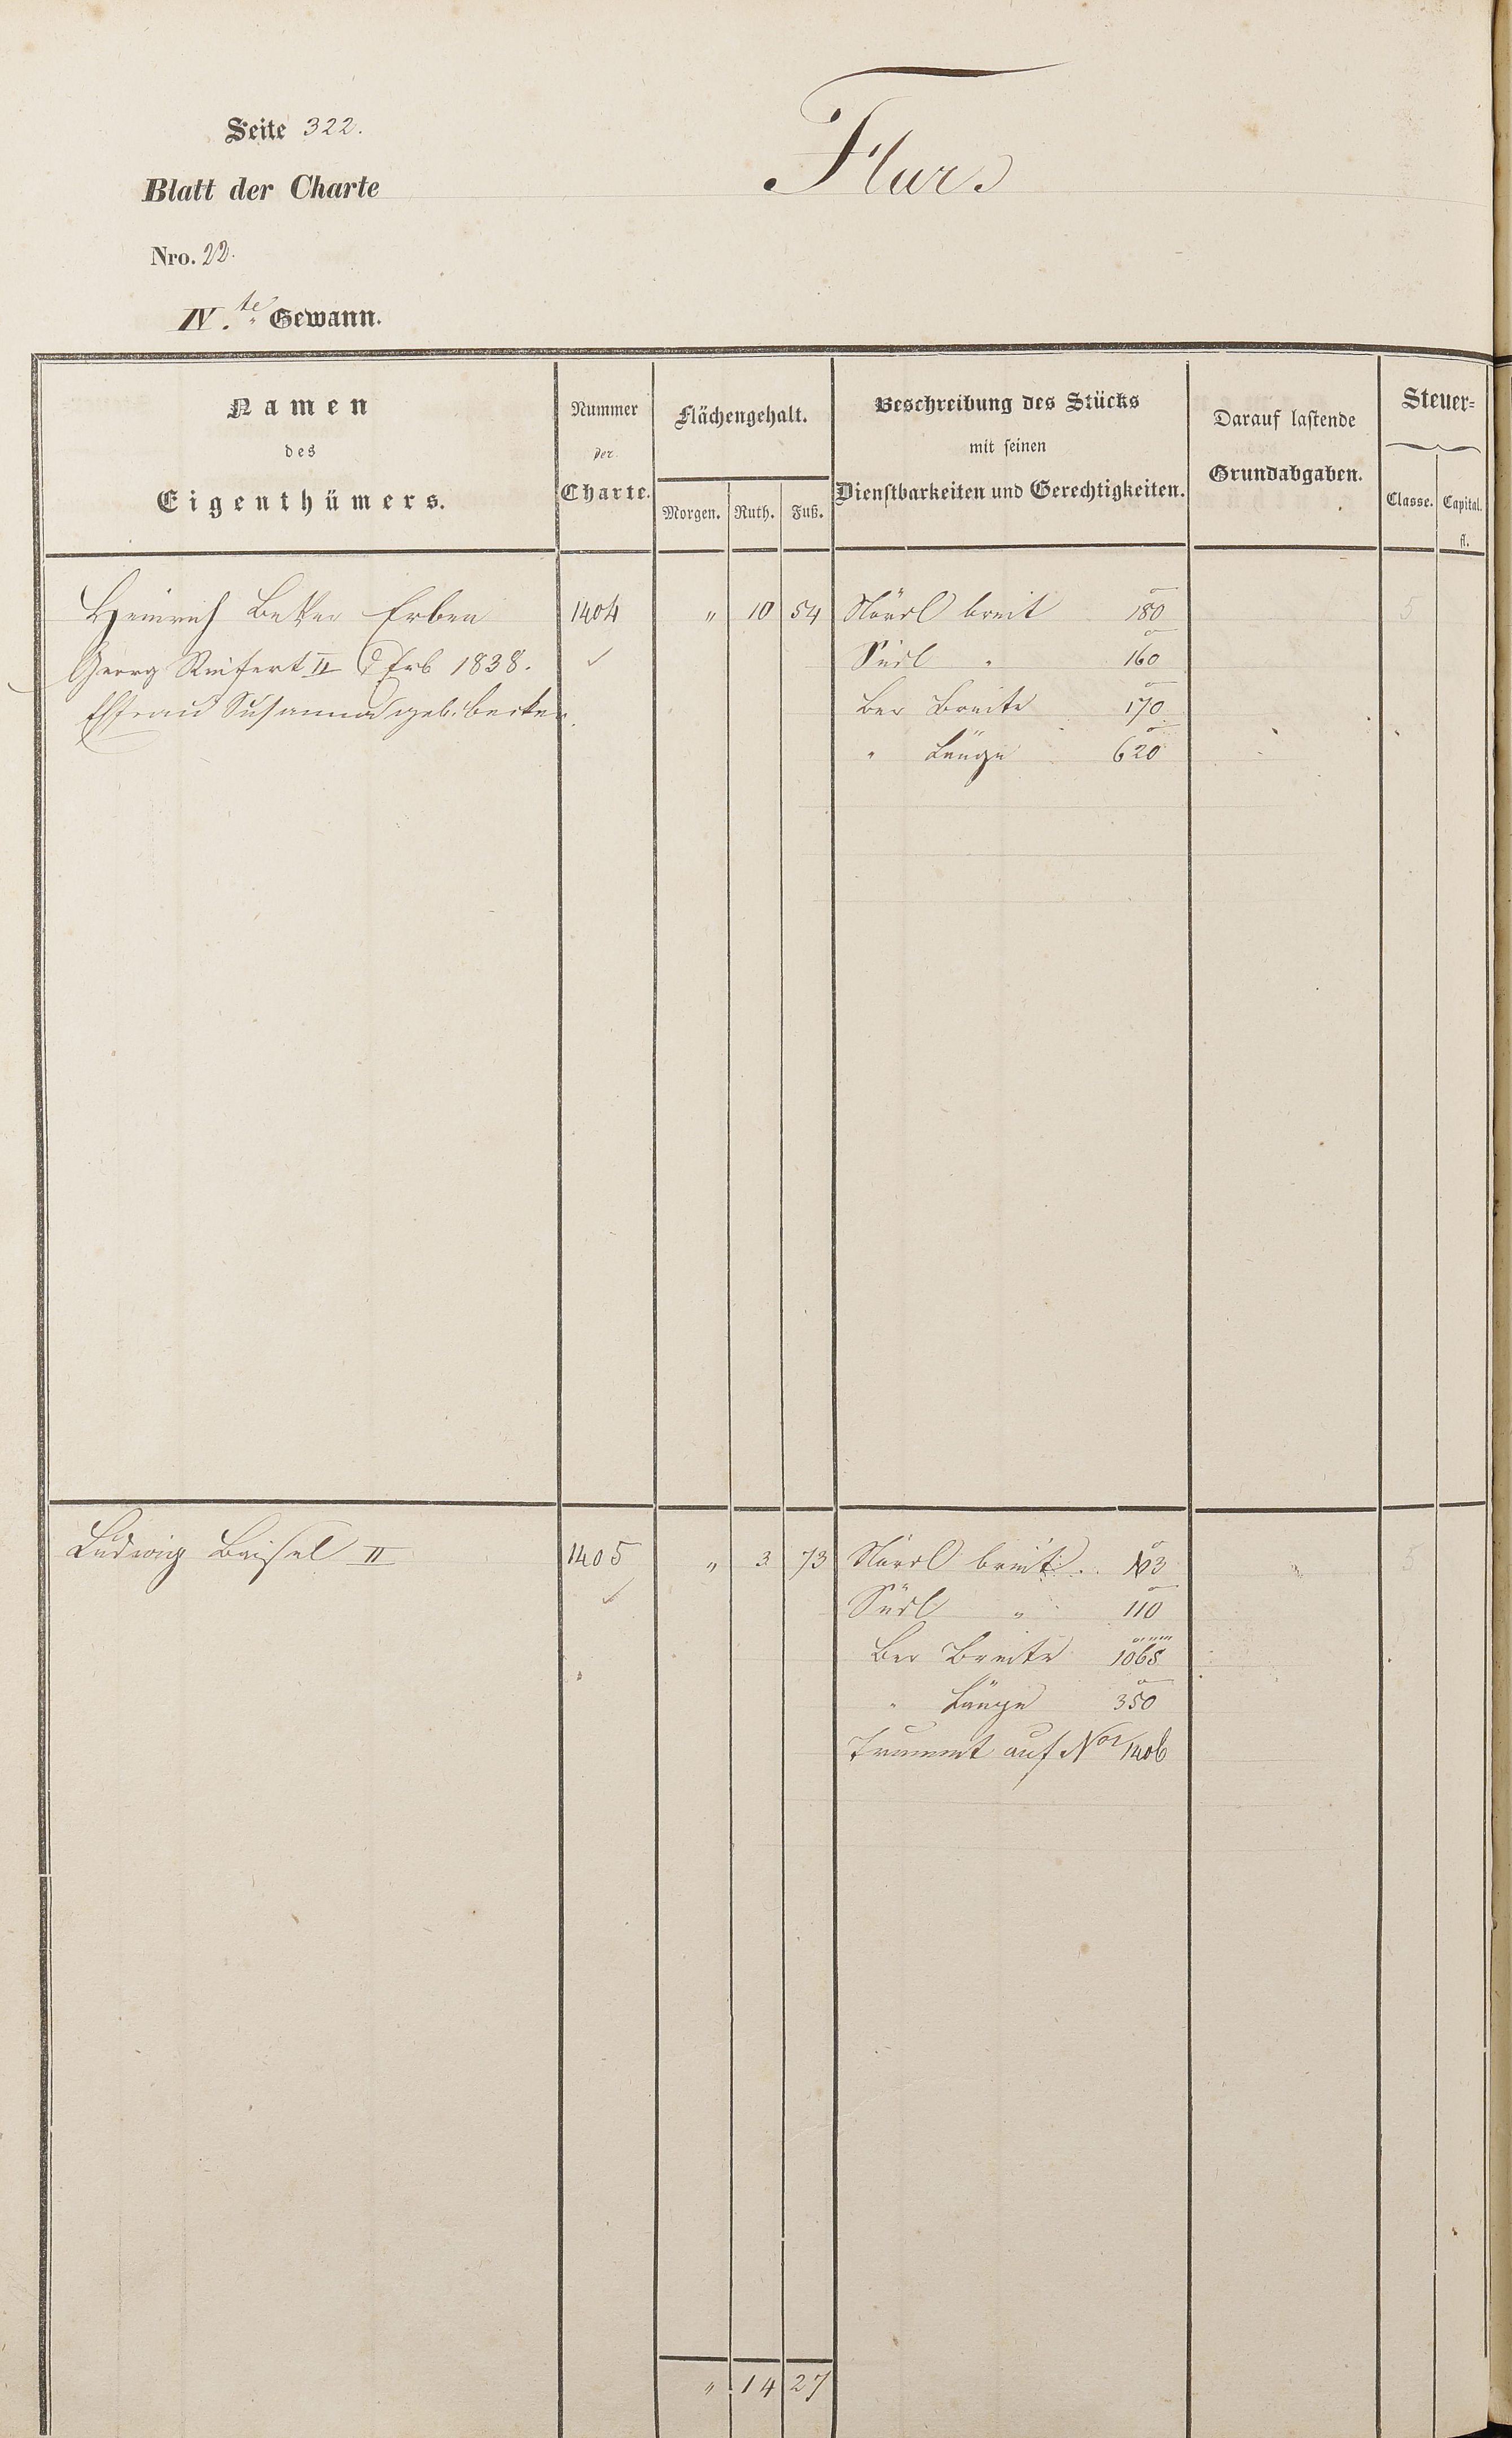 Seite 322.
Flur
Blatt der Charte
Nro. 22.
IV.te Gewann.
Namen
des
Eigenthümers.
Nummer
der
Charte.
Flächengehalt.
Morgen. Ruth. Fuß.
Beschreibung des Stücks
mit seinen
Dienstbarkeiten und Gerechtigkeiten.
Darauf lastende
Grundabgaben.
Steuer=
Classe. Capital.
fl.
Heinrich Becker Erben 1404 " 10 54 Nördl breit 180 5
Georg Reifert II d Erb 1838. Südl " 160
Ehfrau Susanna geb. Becker. Ber Breite 170
" Länge 620
Ludwig Beisel II 1405 " 3 73 Nördl breit 103 5
Südl " 110
Ber Breite 1065
" Länge 350
Trummt auf Nor 1406
" 14 27